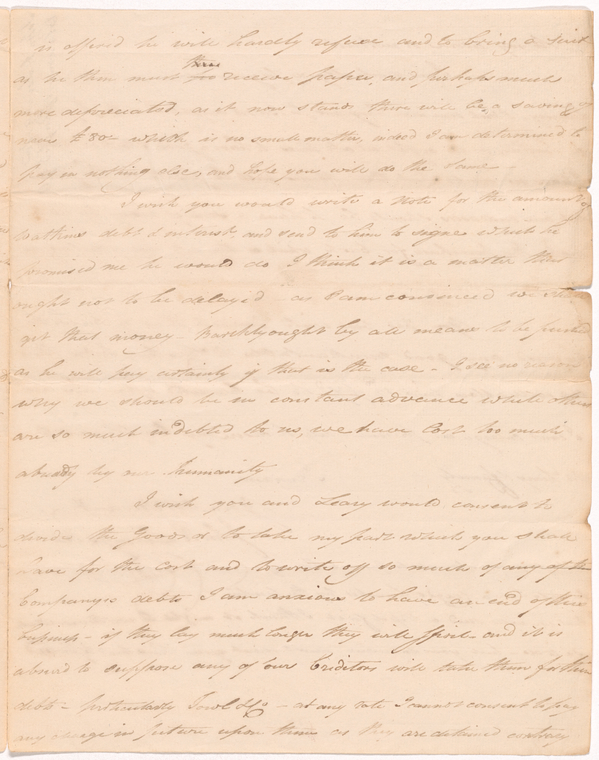 is offered he will hardly refuse and to bring a suit
as he then must too receive paper, and perhaps much
more depreciated, as it now stands there will be a saving of
near £80 which is no small matter, indeed I am determined to
pay in nothing else, and hope you will do the same —
I wish you would write a Note for the amount of
Watkins debt & interest and send to him to signe which he
promised me he would do I think it is a matter that
ought not to be delayed — as I am convinced we
get that money — ought by all means to be
as he will pay certainly if that is the case — I see no reason
why we should be in constant advance while others
are so much indebted to us, we have lost too much
already by our humanity
I wish you and Leary would consent to
divide the Goods or to take my part which you shall
have for the cost and to write off so much of any of the
Companys debts I am anxious to have an end of this
business — if they lay much longer they will spoil and it is
absurd to suppose any of our Creditors will take them for their
debts — particularly &Co — at any rate I cannot consent to pay
any charge in future upon them as they are detained contrary